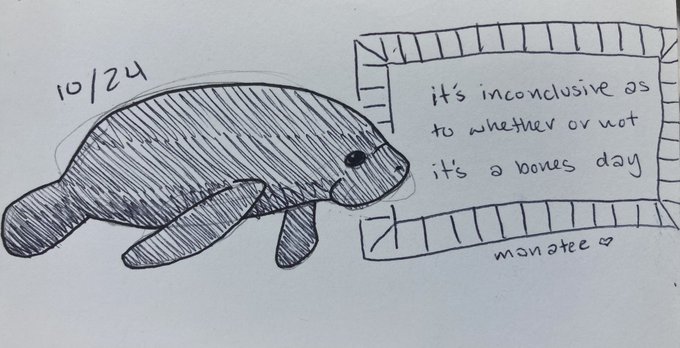 10/24
it's inconclusive as
to whether or not
it's a bones day
manatee ♡